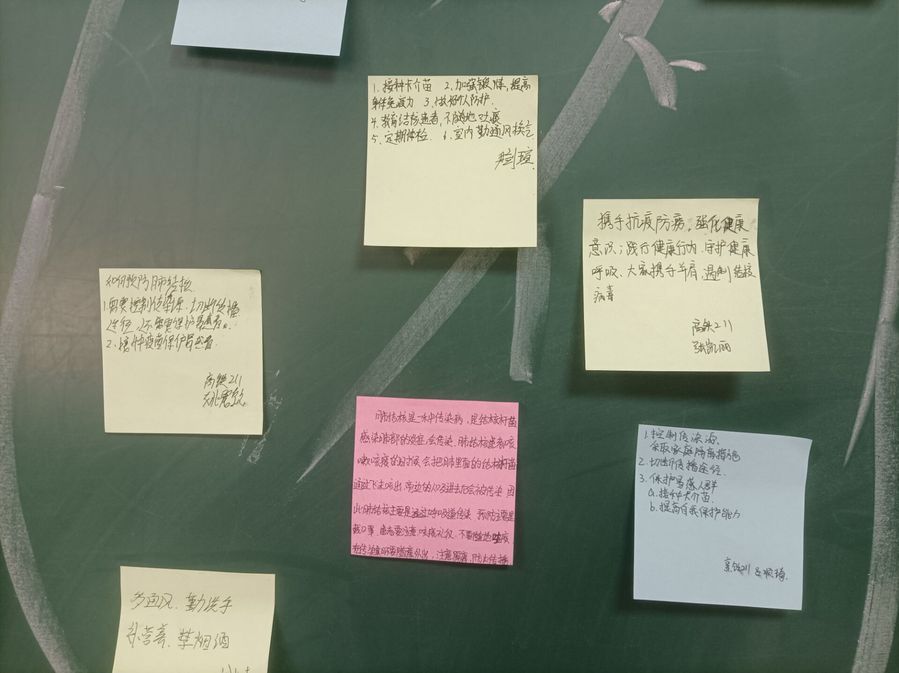 1、接种卡介苗 2、加强锻炼,提高
身体免疫力 3、做好个人防护.
4、教育结核患者,不随地吐痰
5、定期体检 6、室内勤通风换气
瑄
携手抗疫防痨,强化健康
意识;践行健康行为,守护健康
呼吸、大家携手并肩,遏制结核
病毒
高铁211
张凯丽
如何预防肺结核
1.需要控制传染源,切断传播
途径,还需要保护易患者。
2、接种疫苗保护易患者.
高铁211
肺结核是一种传染病,是结核杆菌
感染肺部的炎症,会传染,肺结核患者咳
嗽咳痰的时候会把肺里面的结核杆菌
通过飞沫喷出,旁边的人吸进去后会被传染,因
此肺结核主要是通过呼吸道传染 预防主要是
戴口罩,患者要注意咳痰礼仪,不要随地吐痰
1.控制传染源、
采取家庭隔离措施
2、切断传播途径
3、保护易感人群
a、接种卡介苗
b、提高自我保护能力
高铁211
多通风、勤洗手
补营养、禁烟酒